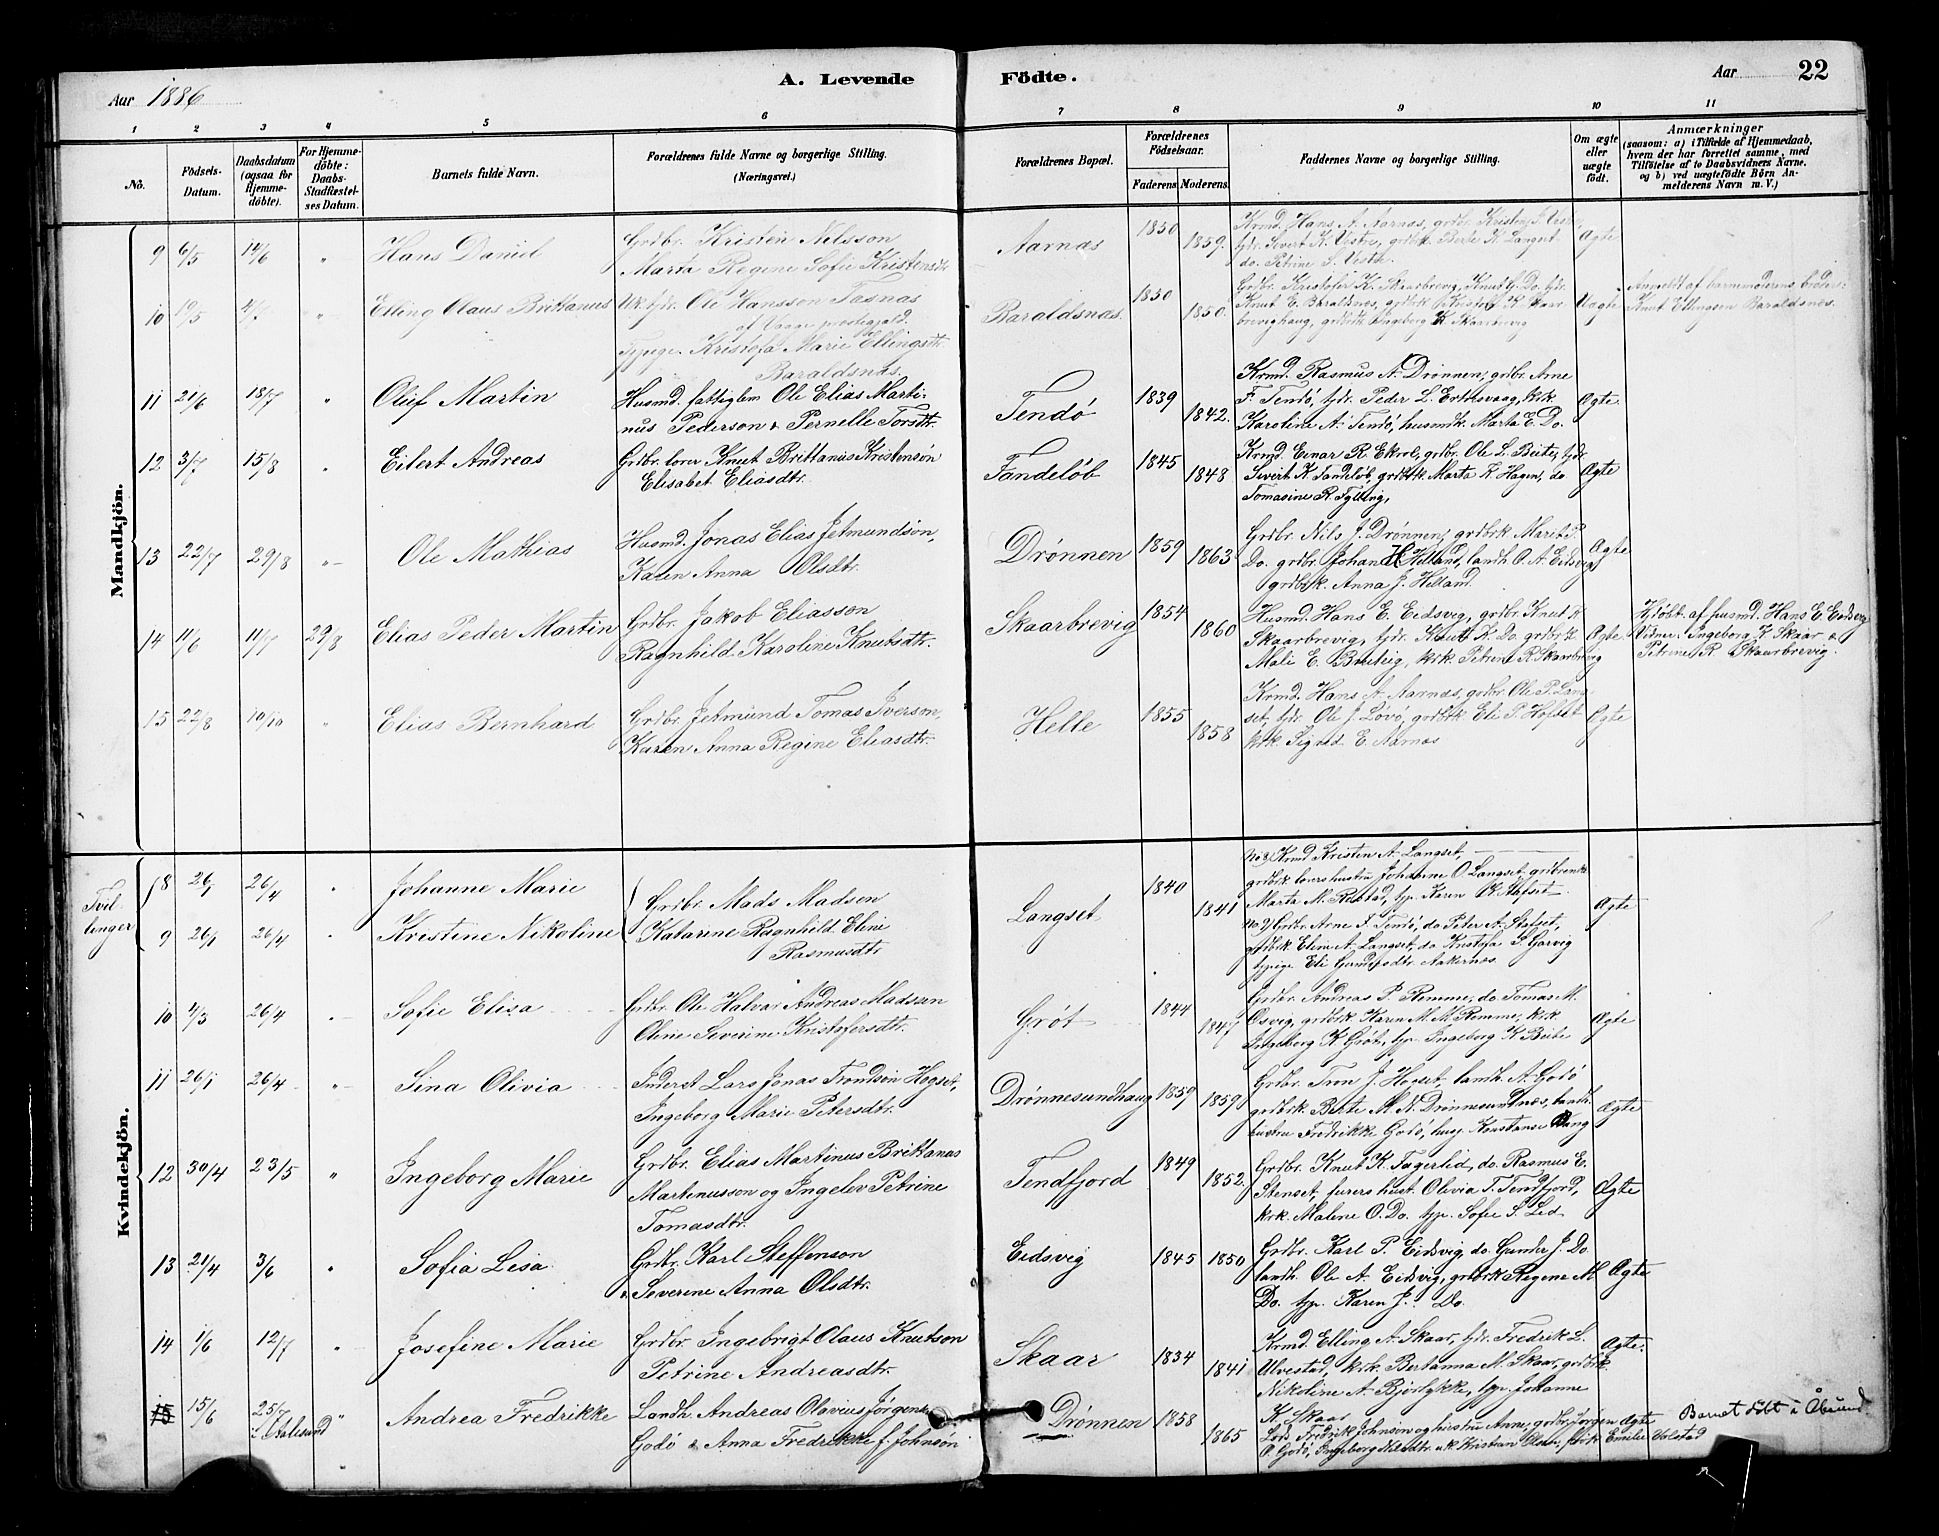 Aar 1886
A. Levende Födte.
Aar 22
1 2 3 4 5 6 7 8 9 10 11
No.
Födsels-Datum.
Daabsdatum (ogsaa for Hjemme-döbte).
For Hjemme-döbte: Daabs-Stadfæstelses Datum.
Barnets fulde Navn.
Forældrenes fulde Navne og borgerlige Stilling.
(Næringsvei.)
Forældrenes Bopæl.
Forældrenes Födselsaar.
Faderens. Moderens.
Faddernes Navne og borgerlige Stilling.
Om ægte eller uægte födt.
Anmærkninger
(saasom: a) i Tilfælde af Hjemmedaab, hvem der har forrettet samme, med Tilföielse af to Daabsvidners Navne. og b) ved uægtefödte Börn Anmelderens Navn m. V.)
Mandkjön.
9 6/5 14/6 " Hans Daniel
Grdbr. Kristen Nilsson
Marta Regine Sofie Kristensdtr
Aarnæs 1850 1859.
Krmd. Hans A. Aarnæs, grdbr. Kristen S. Vestre,
tjdr. Sivert K. Vestre, grdbrk. Berte K. Langset
do. Petrine S. Vestre
Ægte
10 19/5 4/7 " Elling Olaus Brittanus
Uk. tjdr. Ole Hansson Tasnæs
af Vaage præstegjæld.
Tjpige. Kristofa Marie Ellingsdtr.
Baraldsnæs.
Baraldsnæs. 1850 1850.
Grdbr. Kristofer K. Skaarbrevig, Knut G. Do. tjdr.
Knut E. Baraldsnæs, grdbrk. Kristof. K. Skaar
brevighaug, grdbrdtr Ingeborg K Skaarbrevig
Uægte
Anmeldt af barnmoderens broder:
Knut Ellingsen Baraldsnæs.
11 21/6 18/7 " Oluf Martin
Husmd. fattiglem Ole Elias Marti-
nus Pederson & Pernelle Torsdtr.
Tendö 1839 1842.
Krmd. Rasmus A. Drønnen, grdbr. Arne
F. Tendö, tjdr. Peder L. Ertesvaag, krk.
Karoline A. Tendö, husmdk. Marta E. Do.
Ægte.
12 3/7 15/8 " Eilert Andreas
Grdbr. lærer Knut Brittanus Kristensön
Elisabet Eliasdtr.
Tandeløb 1845 1848
Krmd. Einar R. Ekrol, grdbr. Ole L. Beite, tjdr
Sivert K. Tandeløb, grdbrk. Marta K. Hagen, do
Tomasine R. Tylling,
Ægte
13 22/7 29/8 " Ole Mathias
Husmd. Jonas Elias Jetmundsön,
Karen Anna Olsdtr.
Drønnen 1859 1863
Grdbr. Nils J. Drønnen, grdbrk Marit P.
Do. grdbr. Johan H Helland, landh. O. A. Eidsvig
grdbrk. Anna J. Helland.
Ægte
14 11/6 11/7 29/8 Elias Peder Martin
Grdbr. Jakob Eliasson
Ragnhild Karoline Knutsdtr.
Skaarbrevig 1854 1860
Husmd. Hans E. Eidsvig, grdbr. Knut K
Skaarbrevig, tjdr. Knut K. Do. grdbrk
Mali E. Breiteig, krk. Petrine R. Skaarbrevig
Ægte
Hjdøbt. af husmd. Hans E Eidsvig
Vidner. Ingeborg K Skaar &
Petrine R. Skaarbrevig.
15 22/8 10/10 " Elias Bernhard
Grdbr. Jetmund Tomas Iverson,
Karen Anna Regine Eliasdtr.
Helle 1855 1858
Krmd. Hans A. Aarnæs, grdbr. Ole P. Lang-
set, tjdr. Ole J. Løvö, grdbrk. Eli P. Hofset
krk. Sigrid E. Aarnæs
Ægte
Kvindekjön.
Tvil-
linger
8 26/1 26/4 " Johanne Marie
9 26/1 26/4 " Kristine Nikoline
Grdbr. Mads Madsen
Katarine Ragnhild Eline
Rasmusdtr
Langset 1840 1841
No 8) Krmd Kristen A. Langset,
grdbrk. lærershustru Johanne O. Langset
Marta M. Rostad, tjp. Karen K.
No 9) Grdbr. Arne F. Tendö, do Peter A. Stalset,
grdbrk. Eline A. Langset, do Kristofa P. Garvig
tjpige Eli Aakernæs
Ægte
10 4/3 26/4 " Sofie Elisa
Grdbr. Ole Halvar Andreas Madsen
Oline Severine Kristofersdtr.
Grøt 1844 1847
Grdbr. Andreas P. Remme, do. Tomas M.
Osvig, grdbrk. Karen M. M. Remme, krk.
Ingeborg K Grøt, tjp. Ingeborg K. Beite
Ægte
11 26/1 26/4 " Sina Olivia
Inderst Lars Jonas Trondsön Hogset,
Ingeborg Marie Petersdtr.
Drønnesundhaug 1859 1859
Grdbr. Tron J. Hogset, landh. A. Godö
grdbrk. Berte M. N. Drønnesundnæs, landh.
hustru Fredrikke Godö, husj. Konstanse
Ægte
12 30/4 23/5 " Ingeborg Marie
Grdbr. Elias Martinus Brittanus
Martinusson og Ingelev Petrine
Tomasdtr.
Tendfjord 1849 1852.
Grdbr. Knut K. Fagerlid, do. Rasmus E.
Stenset, furers hust. Olivia T. Tendfjord,
krk. Malene O. Do. tjp. Sofie S. Lid
Ægte
13 21/4 3/6 " Sofia Lisa
Grdbr. Karl Steffenson
& Severine Anna Olsdtr.
Eidsvig 1845 1850
Grdbr. Karl P. Eidsvig, do. Gunder J. Do
landh. Ole A. Eidsvig, grdbrk Regine M
Do. tjp. Karen J. Do.
Ægte
14 1/6 12/7 " Josefine Marie
Grdbr. Ingebrigt Olaus Knutson
Petrine Andreasdtr.
Skaar 1834 1841
Krmd. Elling A. Skaar, tjdr. Fredrik L.
Ulvestad, krk. Bertanna M. Skaar, grdbrk.
Nikoline A. Bjørlykke, tjp. Johanne
K. Skaar
Ægte.
15 15/6 25/7 i Aalesund " Andrea Fredrikke
Landh. Andreas Olavius Jørgens.
Godö & Anna Fredrikke f. Johnsön
Drønnen 1858 1865
Lods Fredrik Johnson og hustru Anne, grdbr. Jørgen
O. Godö, Ingeborg uk Kristian Olsen, Emelie Volstad
Ægte
Barnet födt i Ålesund